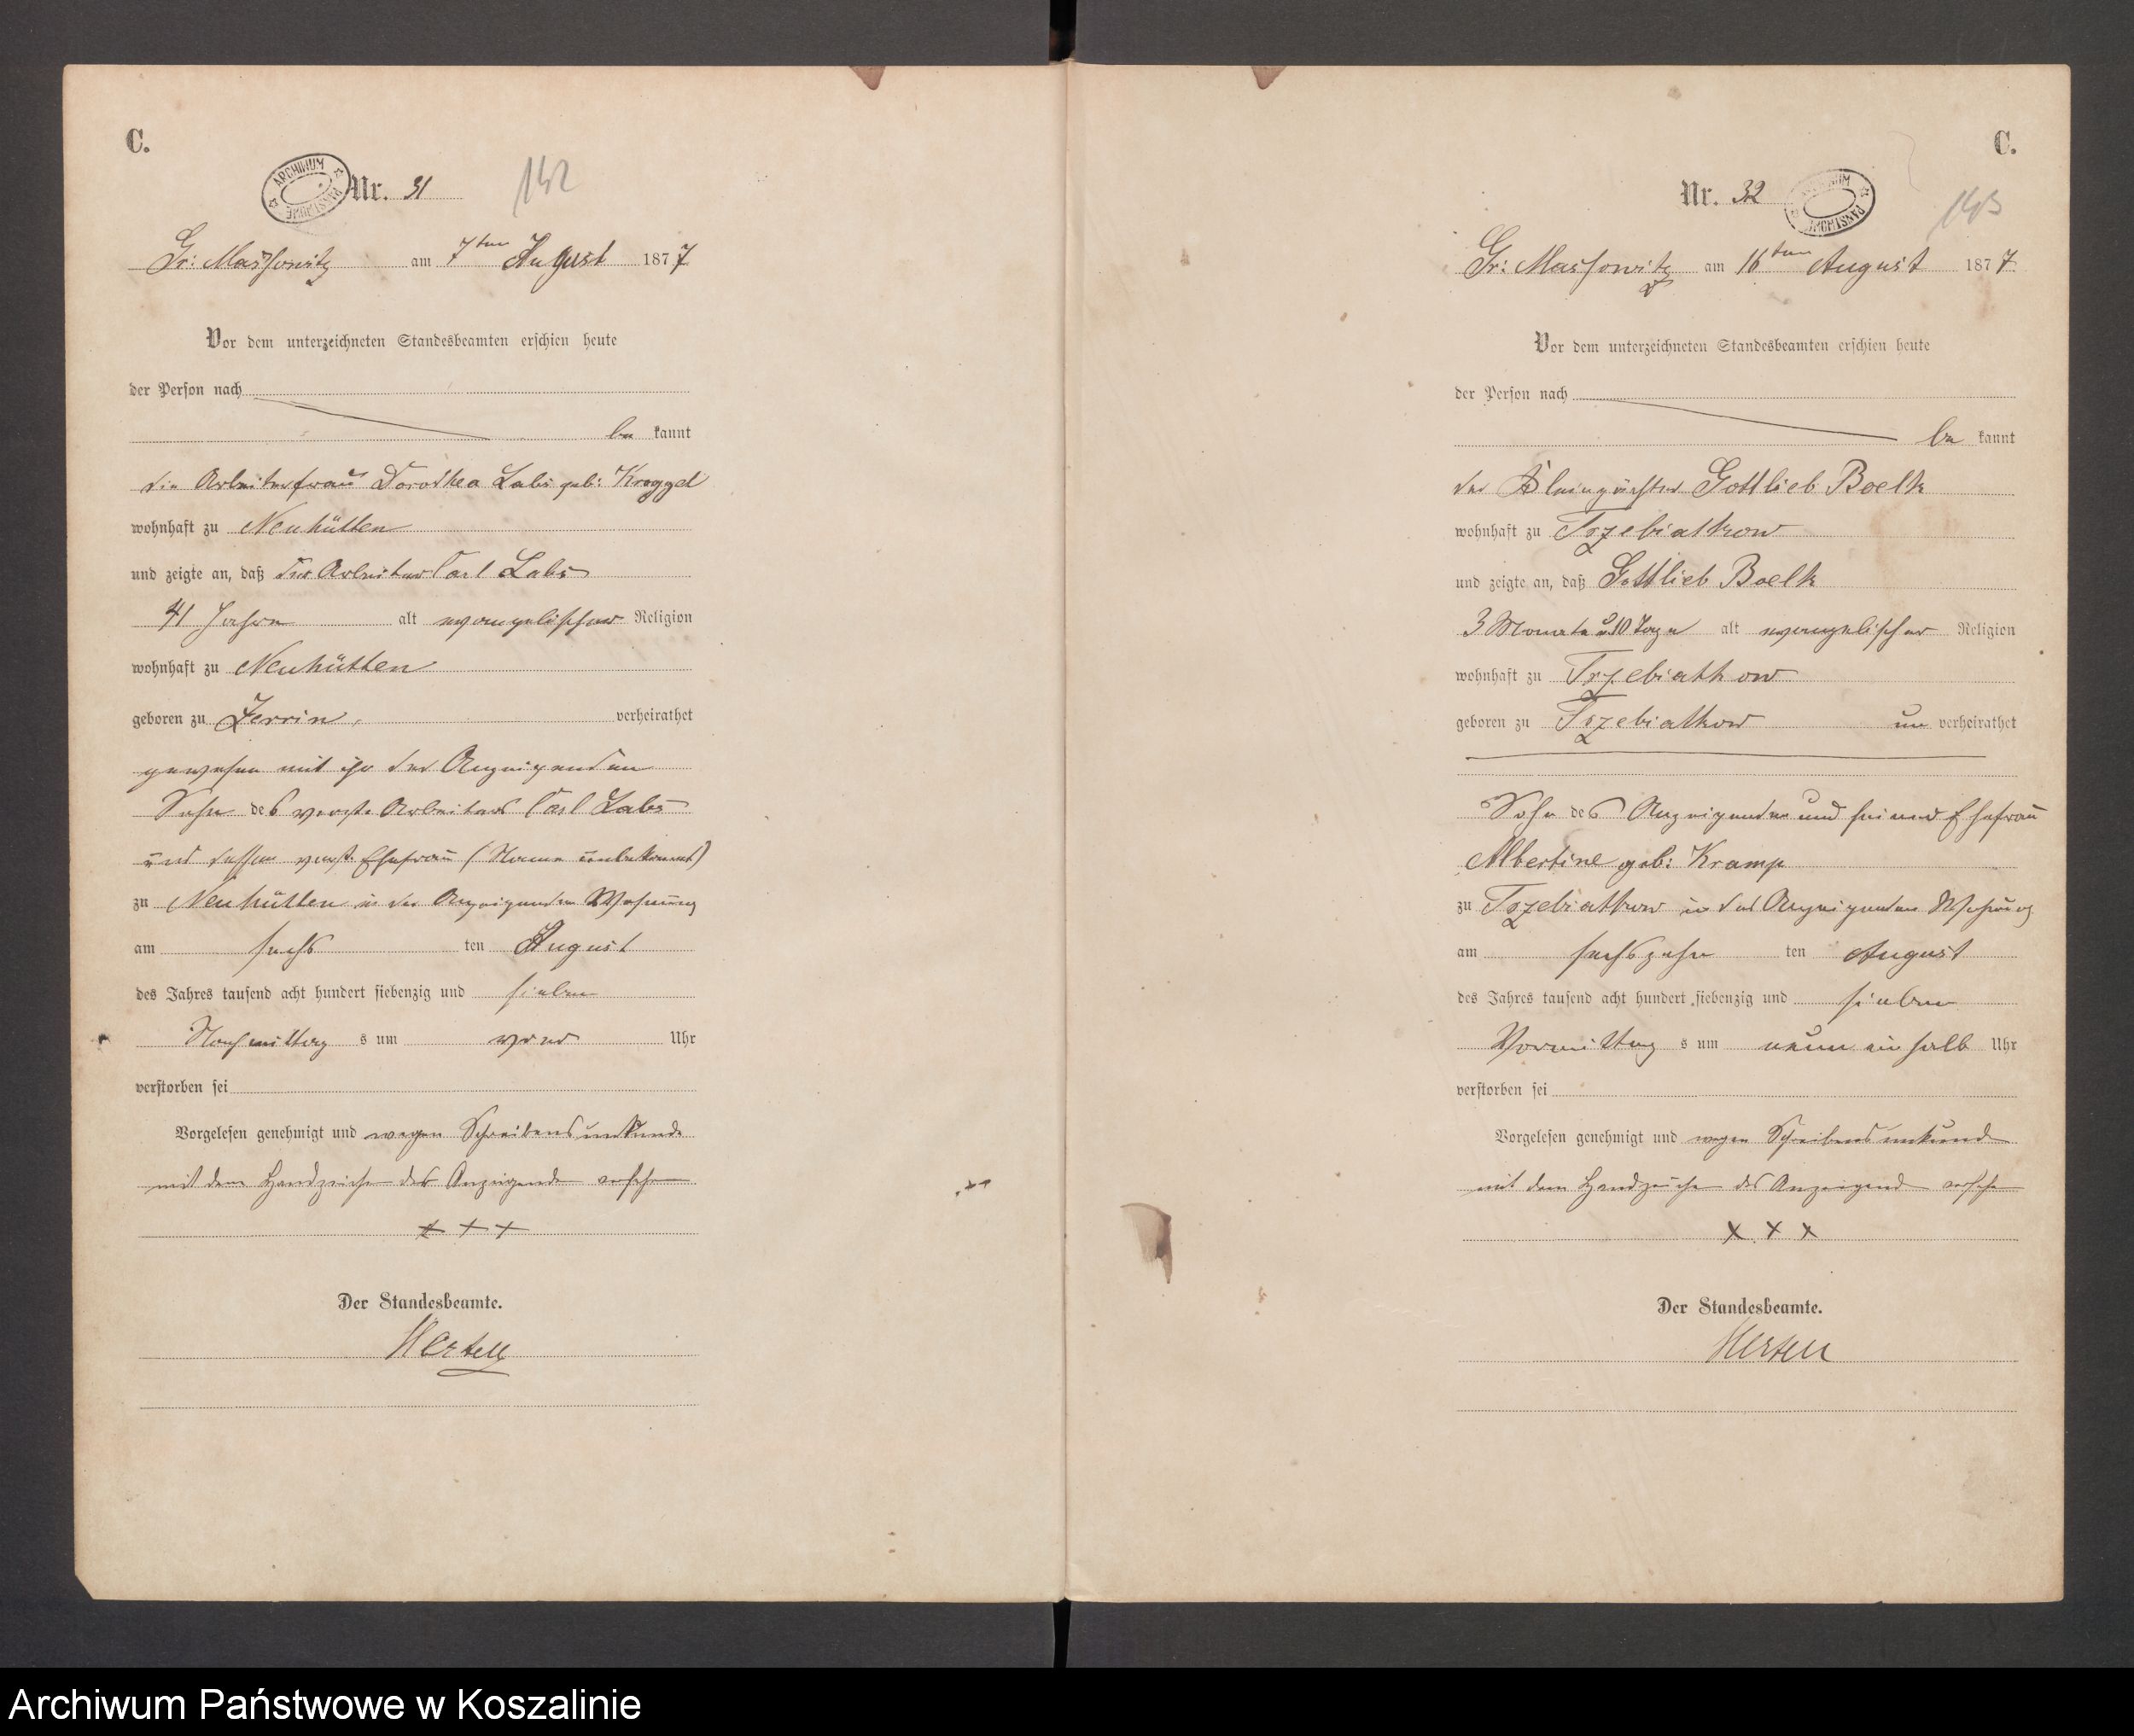 C.
Nr. 31
142
ARCHIWUM PAŃSTWOWE
Gr: Massowitz am 7ten August 1877
Vor dem unterzeichneten Standesbeamten erschien heute
der Person nach
be kannt
die Arbeiterfrau Dorothea Labs geb: Kroggel
wohnhaft zu Neuhütten
und zeigte an, daß der Arbeiter Carl Labs
41 Jahre alt evangelischer Religion
wohnhaft zu Neuhütten
geboren zu Zerrin, verheirathet
gewesen mit ihr der Anzeigenden
Sohn des verst. Arbeiters Carl Labs
und dessen verst. Ehefrau (Name unbekannt)
zu Neuhütten in der Anzeigenden Wohnung
am sechs ten August
des Jahres tausend acht hundert siebenzig und sieben
Nachmittag s um vier Uhr
verstorben sei
Vorgelesen genehmigt und wegen Schreibensunkunde
mit dem Handzeichen der Anzeigenden versehen
+ + +
Der Standesbeamte.
Hertell
C.
Nr. 32
143
ARCHIWUM PAŃSTWOWE
Gr: Massowitz am 16ten August 1877
Vor dem unterzeichneten Standesbeamten erschien heute
der Person nach
be kannt
der Gottlieb Boelk
wohnhaft zu Trzebiatkow
und zeigte an, daß Gottlieb Boelk
3 Monate u 10 Tage alt evangelischer Religion
wohnhaft zu Trzebiatkow
geboren zu Trzebiatkow un verheirathet
Sohn des Anzeigenden und seiner Ehefrau
Albertine geb: Kramp
zu Trzebiatkow in des Anzeigenden Wohnung
am sechszehn ten August
des Jahres tausend acht hundert siebenzig und sieben
Vormittag s um neun ein halb Uhr
verstorben sei
Vorgelesen genehmigt und wegen Schreibensunkunde
mit dem Handzeichen des Anzeigenden versehen
x x x
Der Standesbeamte.
Hertell
Archiwum Państwowe w Koszalinie